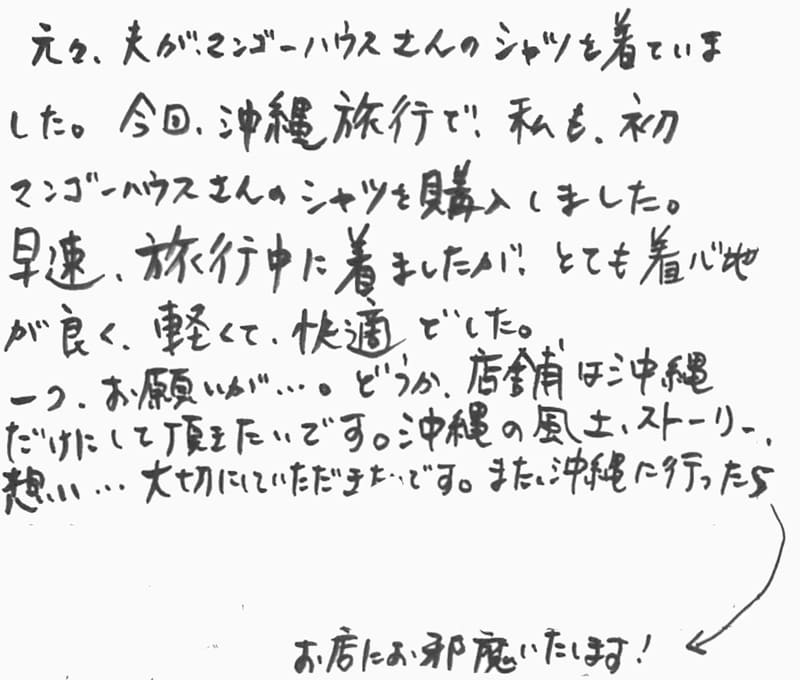 元々、夫が、マンゴーハウスさんのシャツを着ていま
した。今回、沖縄旅行で、私も、初
マンゴーハウスさんのシャツを購入しました。
早速、旅行中に着ましたが、とても着心地
が良く、軽くて、快適でした。
一つ、お願いが…。どうか、店舗は沖縄
だけにして頂きたいです。沖縄の風土、ストーリー、
想い…大切にしていただきたいです。また、沖縄に行ったら
お店にお邪魔いたします!